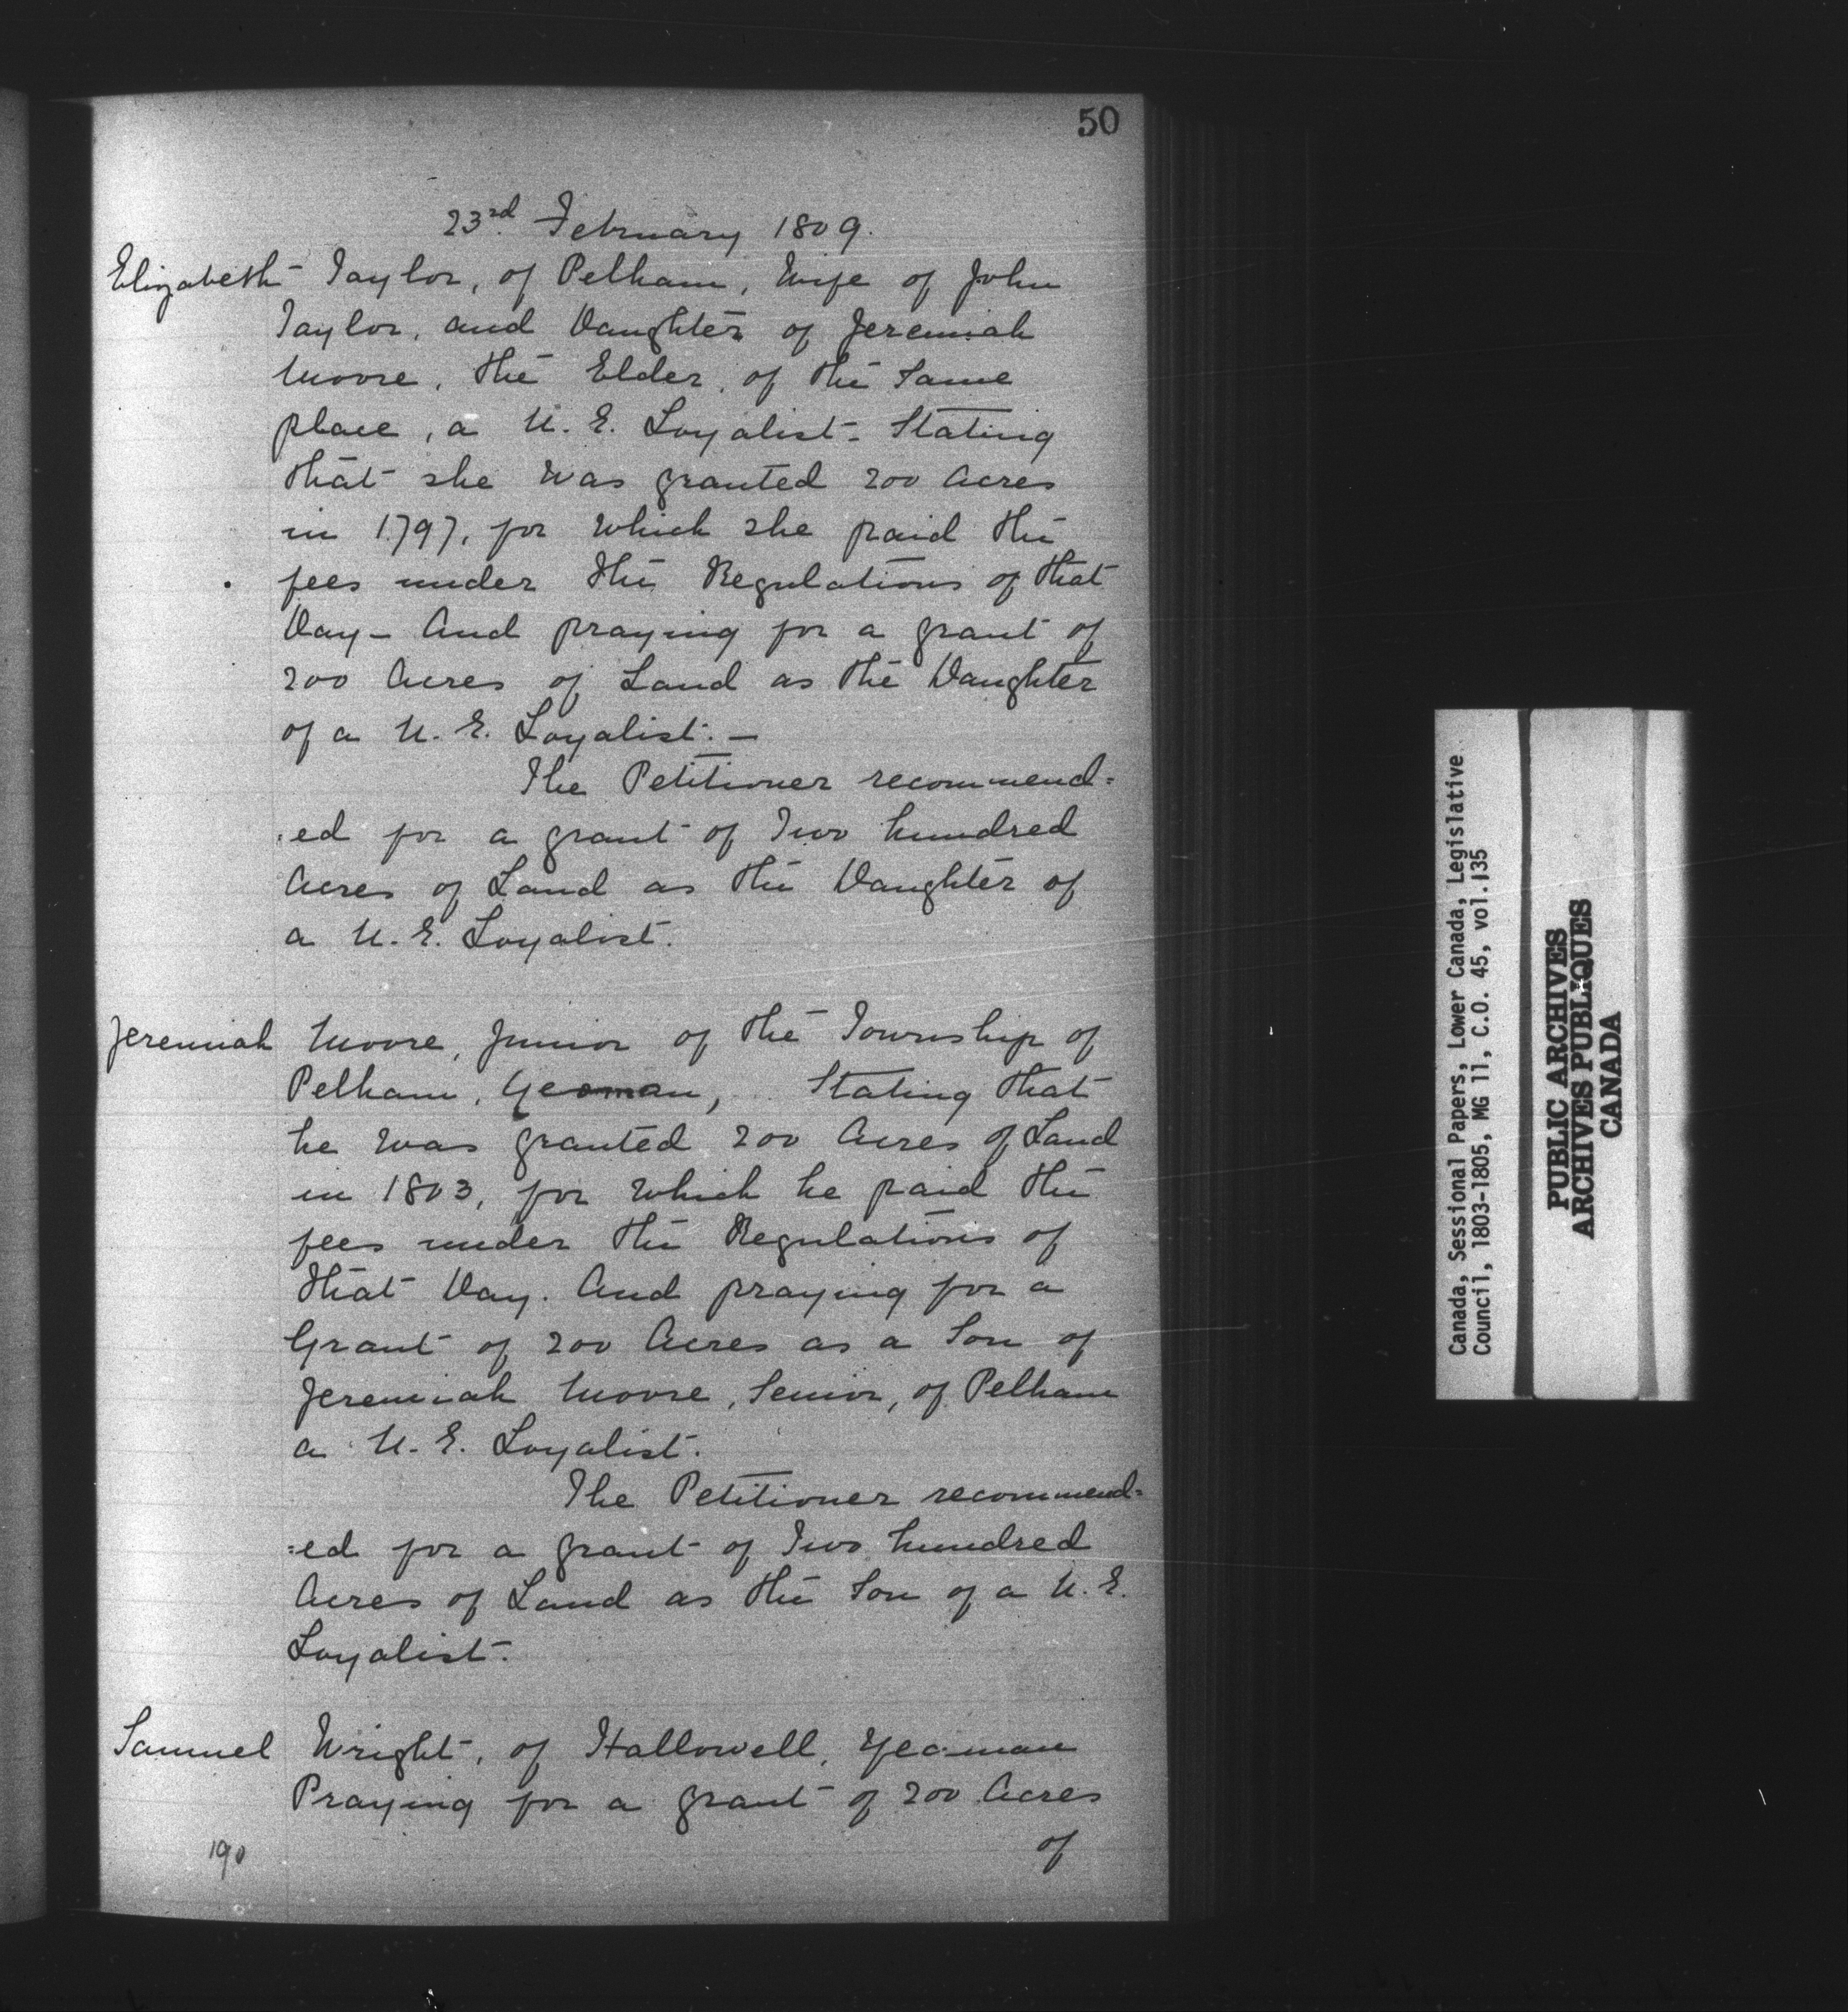 50
23rd. February 1809.
Elizabeth Taylor, of Pelham, Wife of John
Taylor, and Daughter of Jeremiah
Moore, the Elder, of the Same
place, a U. E. Loyalist - Stating
that she was granted 200 Acres
in 1797, for which she paid the
fees under the Regulations of that
Day - And praying for a grant of
200 Acres of Land as the Daughter
of a U. E. Loyalist. -
The Petitioner recommend=
:ed for a grant of Two hundred
Acres of Land as the Daughter of
a U. E. Loyalist.
Jeremiah Moore, Junior of the Township of
Pelham, Yeoman, Stating that
he was granted 200 Acres of Land
in 1803, for which he paid the
fees under the Regulations of
that Day. And praying for a
Grant of 200 Acres as a Son of
Jeremiah Moore, Senior, of Pelham
a U. E. Loyalist.
The Petitioner recommend=
=ed for a grant of Two hundred
Acres of Land as the Son of a U. E.
Loyalist.
Samuel Wright, of Hallowell, Yeoman
Praying for a grant of 200 Acres
of
190
Canada, Sessional Papers, Lower Canada, Legislative
Council, 1803-1805, MG 11, C.O. 45, vol.135
PUBLIC ARCHIVES
ARCHIVES PUBLIQUES
CANADA